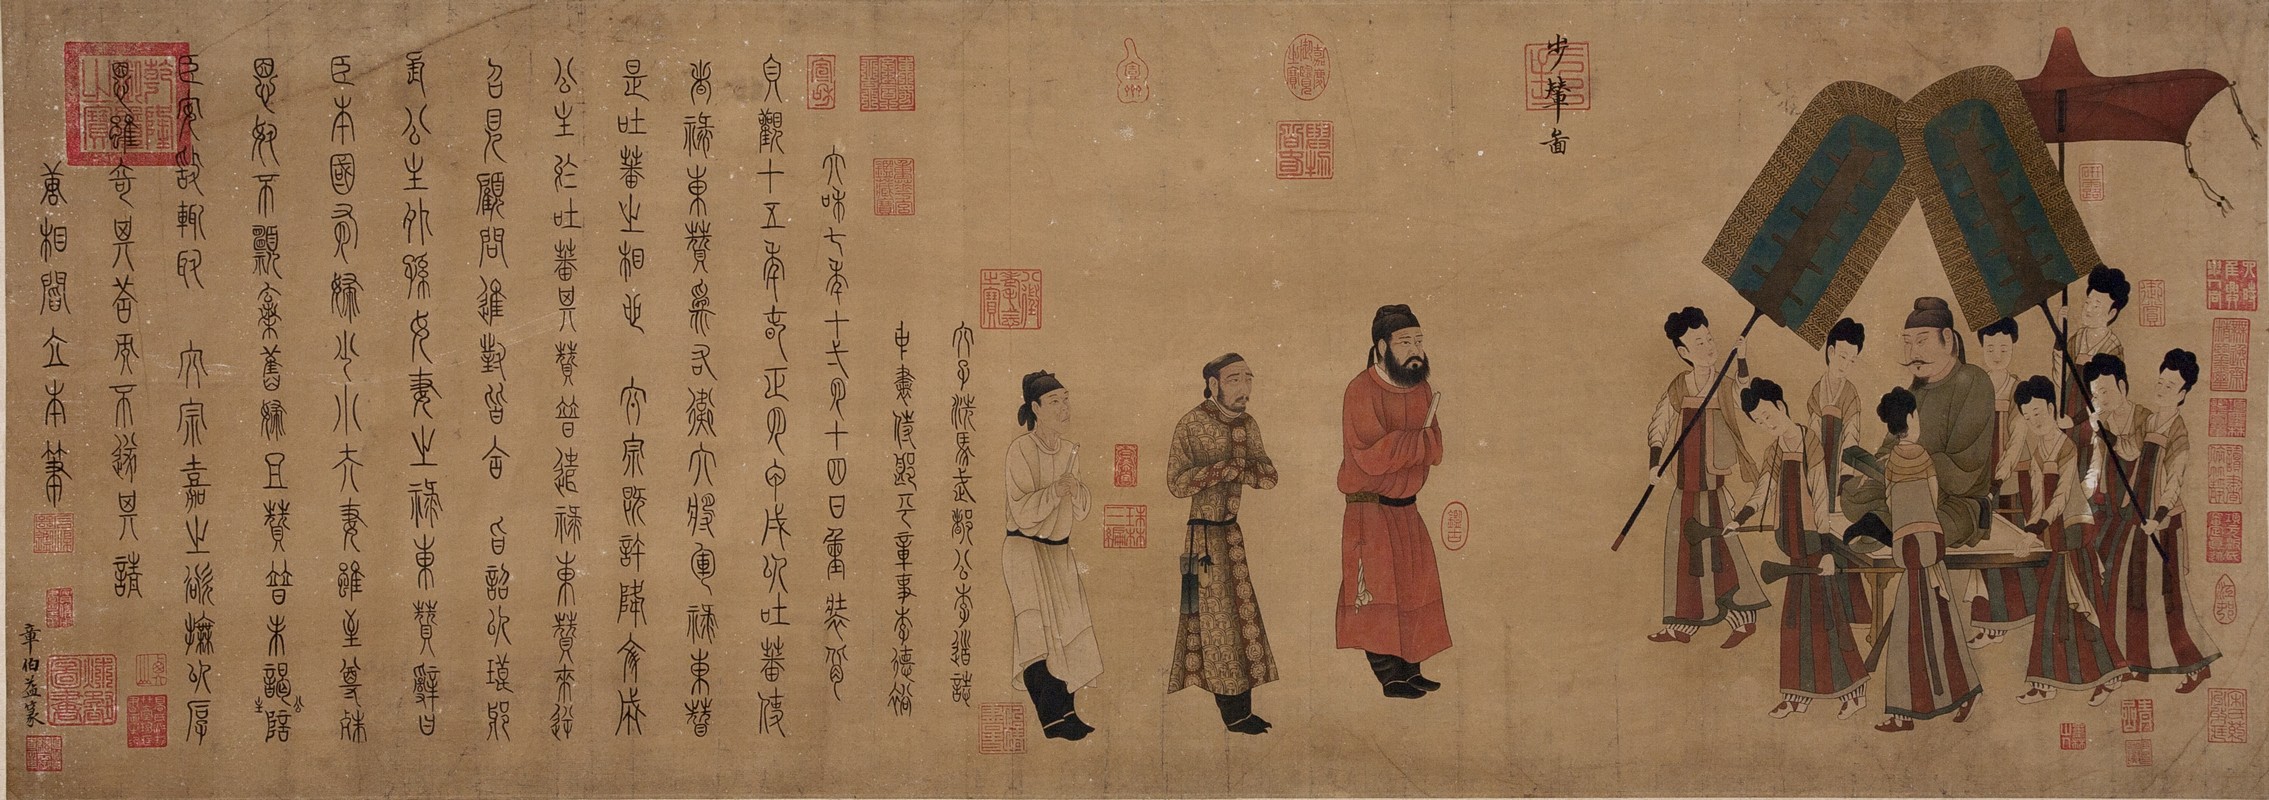 步輦圖
太子洗馬武都公李道誌
中書侍郎平章事李德裕
太和七年十一月十四日重裝背
貞觀十五年春正月甲戌以吐蕃使
者祿東贊爲右衛大將軍祿東贊
是吐蕃之相也 太宗既許降文成
公主於吐蕃其贊普遣祿東贊來逆
召見顧問進對皆合 旨詔以琅邪
長公主外孫女妻之祿東贊辭曰
臣本國有婦少小夫妻雖至尊殊
恩奴不願棄舊婦且贊普未謁公主陪
臣安敢輒取 太宗嘉之欲撫以厚
恩雖奇其答而不遂其請
唐相閻立本筆
章伯益篆
嘉慶御覽之寶